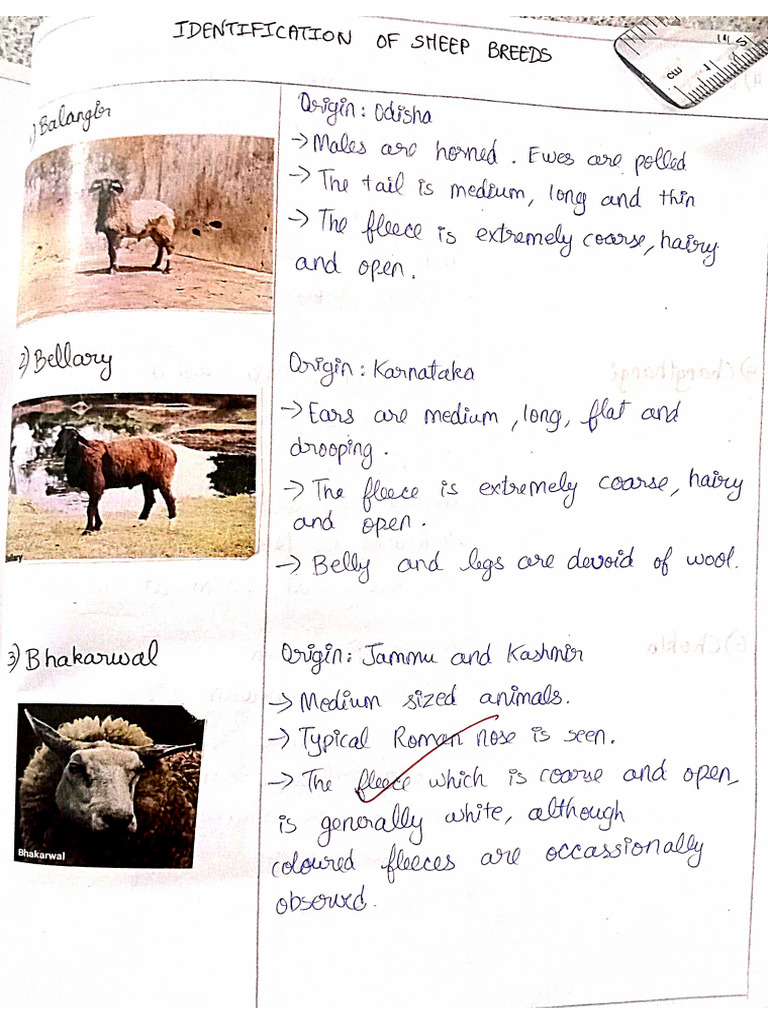 IDENTIFICATION OF SHEEP BREEDS
1) Balangir
Origin: Odisha
→ Males are horned. Ewes are polled
→ The tail is medium, long and thin
→ The fleece is extremely coarse, hairy
and open.
2) Bellary
Origin: Karnataka
→ Ears are medium, long, flat and
drooping.
→ The fleece is extremely coarse, hairy
and open.
→ Belly and legs are devoid of wool.
3) Bhakarwal
Bhakarwal
Origin: Jammu and Kashmir
→ Medium sized animals.
→ Typical Roman nose is seen.
→ The fleece which is coarse and open,
is generally white, although
coloured fleeces are occassionally
observed.